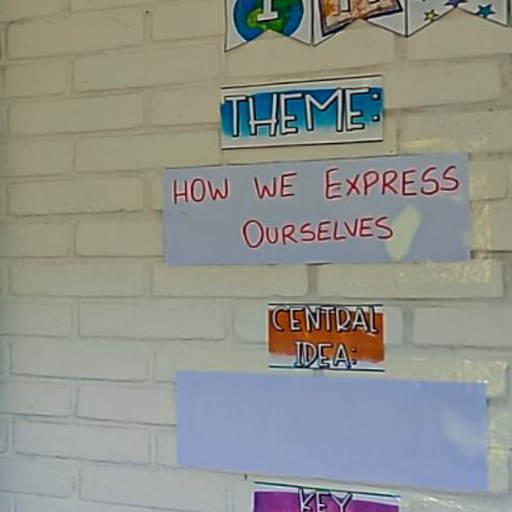 THEME:
HOW WE EXPRESS
OURSELVES
CENTRAL
IDEA:
KEY